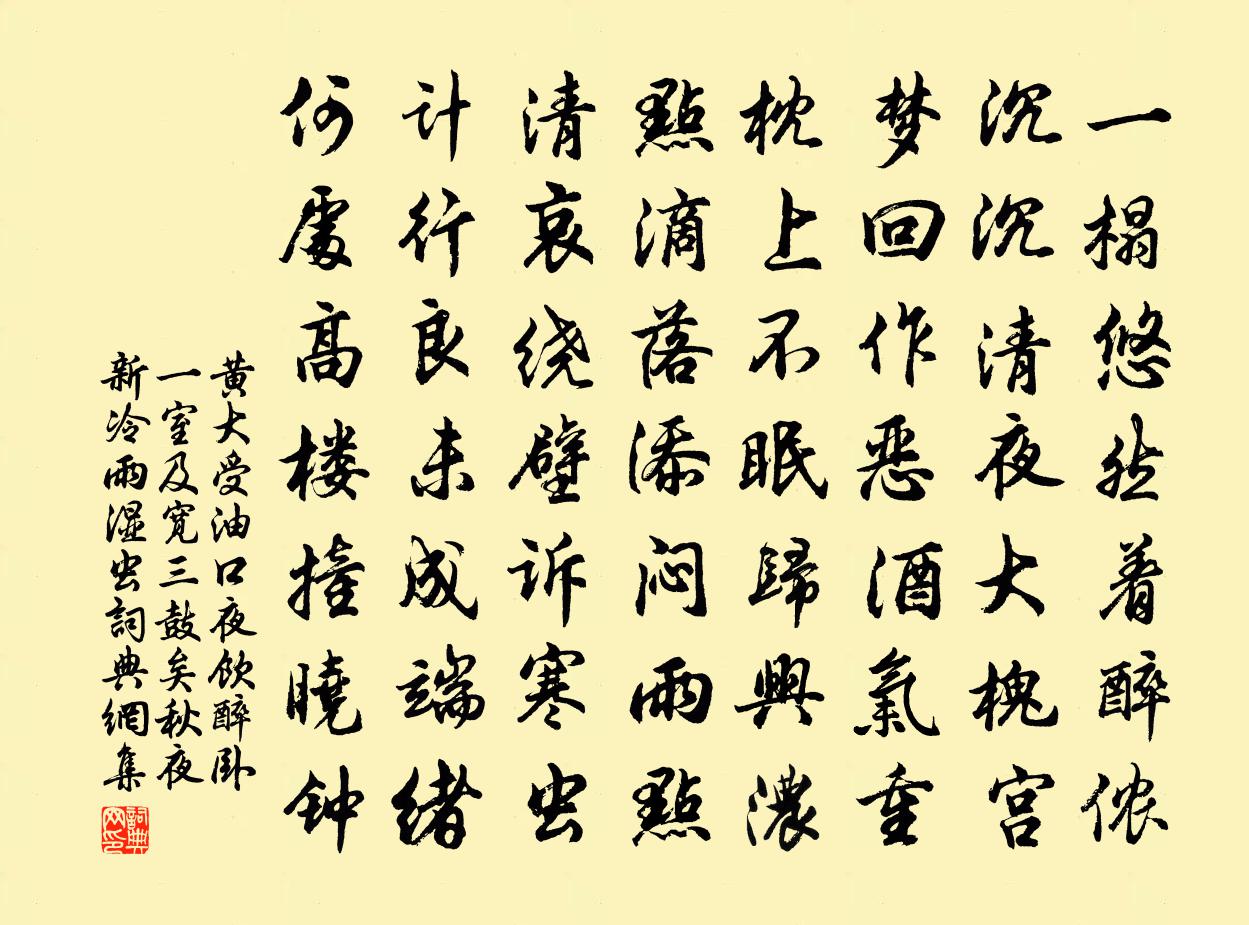 一榻悠然着醉侬
沉沉清夜大槐宫
梦回作恶酒氣重
枕上不眠歸興濃
點滴落添闷雨點
清哀绕壁诉寒虫
计行良未成端绪
何處高楼撞曉钟
黄大受油口夜飲醉卧
一室及寛三鼓矣秋夜
新冷雨濕虫詞典網集
詞典网印